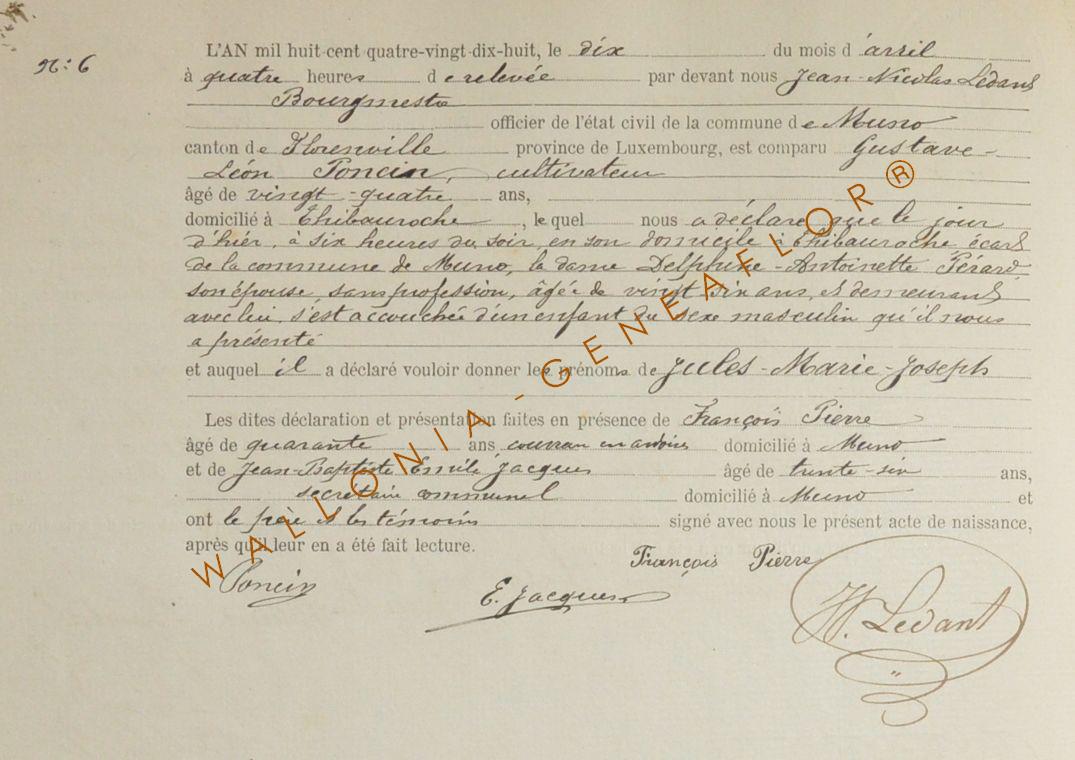 N: 6
L'AN mil huit cent quatre-vingt-dix-huit, le dix du mois d'avril
à quatre heures de relevée par devant nous Jean-Nicolas Ledant
Bourgmestre
officier de l'état civil de la commune de Muno
canton de Florenville province de Luxembourg, est comparu Gustave-
Léon Poncin, cultivateur
âgé de vingt-quatre ans,
domicilié à Thibauroche, lequel nous a déclaré que le jour
d'hier, à six heures du soir, en son domicile à Thibauroche écart
de la commune de Muno, la dame Delphine-Antoinette Pérard,
son épouse, sans profession, âgée de vingt six ans, et demeurant
avec lui, s'est accouchée d'un enfant du sexe masculin qu'il nous
a présenté
et auquel il a déclaré vouloir donner les prénoms de Jules-Marie-Joseph
Les dites déclaration et présentation faites en présence de François Pierre
âgé de quarante ans ouvrier en domicilié à Muno
et de Jean-Baptiste Emile Jacques âgé de trente-six ans,
secrétaire communal domicilié à Muno et
ont le père et les témoins signé avec nous le présent acte de naissance,
après qu'il leur en a été fait lecture.
François Pierre
Poncin
E. Jacques
N. Ledant
WALLONIA-GENEAFLOR®